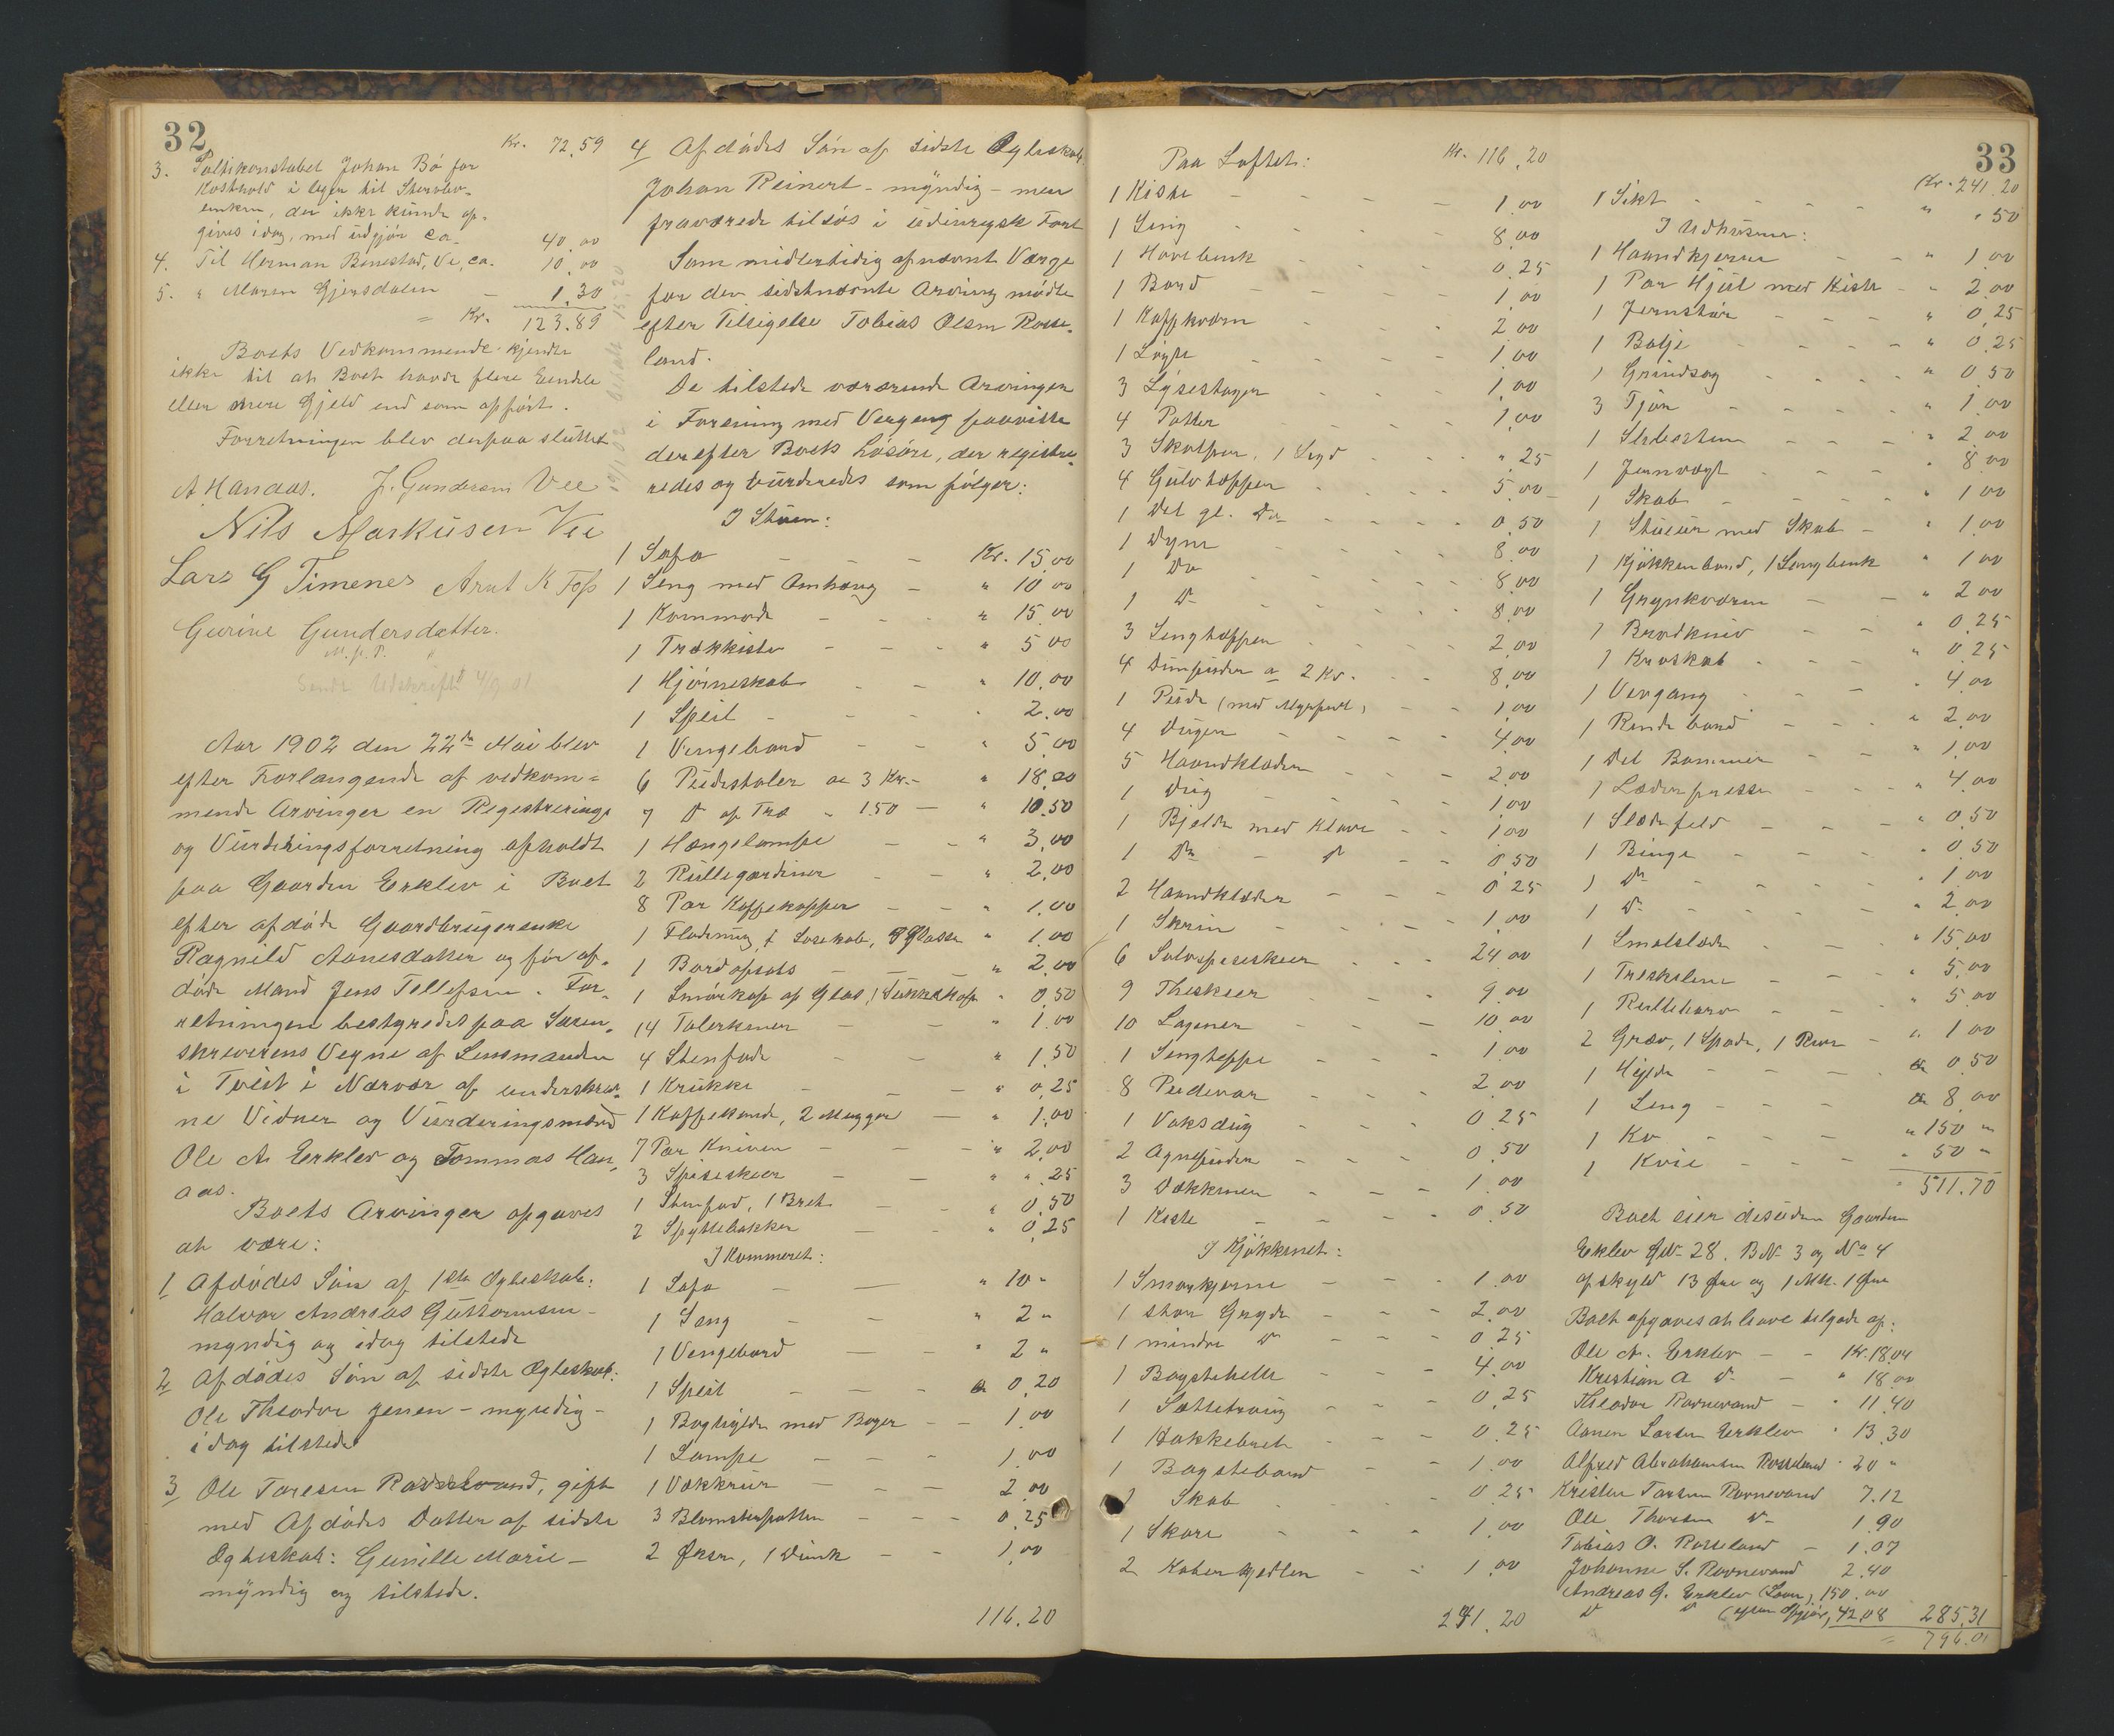 32
Kr. 72.59
3. Politikonstabel Johan Bö for
Kosthold i leger til Skorlev-
enken, der ikke kunde op-
gives idag, med udgjör ca. 40.00
4. Til Herman Benestad, Ve, ca. 10.00
5. " Maren Gjersdalen — 1.30
= Kr. 123.89
Boets Vedkommende kjendte
ikke til at Boet havde flere Eiendele
eller mere Gjeld end som opfört.
Forretningen blev derpaa sluttet
A Hanaas. J. Gundersen Vee
Nils Markusen Vee
Lars G Timenes Arnt K Foss
Gurine Gundersdatter.
M. f. P.
Sendt Udskrift 4/9 01
Aar 1902 den 22de Mai blev
efter Forlangende af vedkom=
mende Arvinger en Regestrerings
og Vurderingsforretning afholdt
paa Gaarden Erklev i Boet
efter afdöde Gaardbrugerenke
Ragnild Aanesdatter og för af-
döde Mand Jens Tellefsen. For-
retningen bestyredes paa Soren-
skreverens Vegne af Lensmanden
i Tveit i Nærvær af underskrev-
ne Vidner og Vurderingsmænd
Ole A. Erklev og Tommas Han-
aas.
Boets Arvinger opgaves
at være:
1 Afdödes Sön af 1ste Ægteskab:
Halvor Andreas Guttormsen -
myndig og idag tilstede
2 Afdödes Sön af sidste Ægteskab:
Ole Theodor Jensen - myndig -
i dag tilstede
3 Ole Taresen Ravnevand, gift
med Afdödes Datter af sidste
Ægteskab: Gunille Marie -
myndig og tilstede.
4 Afdödes Sön af sidste Ægteskab
Johan Reinert - myndig - men
fraværende tilsös i udenrigsk Fart
Som midlertidig opnævnt Værge
for den sidstnævnte Arving mödte
efter Tilsigelse Tobias Olsen Rosse-
land.
De tilstede værende Arvinger
i Forening med Vergen paaviste
derefter Boets Lösöre, der registre-
redes og vurderedes som fölger:
I Stuen:
1 Sofa — — Kr. 15.00
1 Seng med Omhæng — " 10 00
1 Kommode - - " 15.00
1 Trækkiste - - " 5 00
1 Hjörneskab - - " 10.00
1 Speil - - - 2.00
1 Vengebord - - " 5.00
6 Pudestoler a 3 Kr. - " 18.00
7 D af Træ " 1.50 — " 10.50
1 Hængelampe — " 3.00
2 Rullegardiner — " 2.00
8 Par Kaffekopper — " 1.00
1 Flödemug, 1 Sosekop, 8 Glasse " 1.00
1 Bordopsats — " 2.00
1 Smörkop af Glas, 1 Sukkekop " 0.50
14 Talerkener — " 1.00
4 Stenfade - - " 1.50
1 Krukke - - " 0.25
1 Kaffekande, 2 Mugger — " 1.00
7 Par Kniver — — " 2.00
3 Spiseskeer — — " " .25
1 Stenfad, 1 Bret — " 0.50
2 Spyttebakker — " 0.25
I Kammeret:
1 Sofa — — " 10 "
1 Seng - - " 2 "
1 Vengebord — — " 2 "
1 Speil — — 0.20
1 Boghylde med Böger - - 1.00
1 Lampe - - - 1.00
1 Vækkeur - - - 2.00
3 Blomsterpotter - - - 0.25
2 Økser, 1 Dunk - - 1.00
116.20
33
Paa Loftet: Kr. 116.20
1 Kiste - - - - 1.00
1 Seng - - - - 8.00
1 Hövebenk - - - 0.25
1 Bord - - - 1.00
1 Kaffkværn - - - 2.00
1 Lögte - - - 1.00
3 Lysestager - - - 1.00
4 Potter - - - 1.00
3 Skotpor, 1 - - " 25
4 Gulvtæpper - - - 5.00
1 Del gl. Do - - - 0.50
1 Dyne - - - 8.00
1 Do - - - 8.00
1 Do - - - 8.00
3 Sengtæpper - - - 2.00
4 Dunpuder a 2 Kr. - - 8.00
1 Pude (med Myrfuld) - - 1.00
4 Duger - - - 4.00
5 Haandklæder - - - 2.00
1 Dug - - - 1.00
1 Bjelde med Klave - - 1.00
1 Do - do - - 0.50
2 Haandklæder - - - 0.25
1 Skrin - - - 1.00
6 Sölvspiseskeer - - - 24.00
9 Theskeer - - - 9.00
10 Lagener - - - 10.00
1 Sengteppe - - - 1.00
8 Pudevar - - - 2.00
1 Voksdug - - - 0.25
2 Agnepuder - - - 0.50
3 Dækkener - - - 1.00
1 Kiste - - - 0.50
I Kjökkenet:
1 Smörkjerne - - - 1.00
1 stor Gryde - - - 2.00
1 mindre do - - - 0.25
1 Bagstehelle - - - 4.00
1 Sættetraug - - - 0.25
1 Hakkebret - - - 0.25
1 Bagstebord - - - 1.00
1 Skab - - - 0.25
1 Skare - - - 1.00
2 Kaberkjedler - - - 1.00
241.20
Kr. 241.20
1 Sikt - - - " " 50
I Udhusene:
1 Haandkjerre - - " 1.00
1 Par Hjul med Kiste - " 2.00
1 Jernstör - - - " 0.25
1 Balje - - - " 0.25
1 Grindsag - - - " 0.50
3 Tjör - - - " 1.00
1 Slibesten - - - " 2.00
1 Jernvægt - - - " 8.00
1 Skab - - - " 1.00
1 Stueur med Skab - " 1.00
1 Kjökkenbord, 1 Sengbenk " 1.00
1 Grynkværn — " 2.00
1 Brödkniv - - " 0.25
1 Kroskab - - - " 0.25
1 Vevgang - - - " 4.00
1 Rendebord - - - " 2.00
1 Del Bommer - - " 1.00
1 Læderpresse - - " 4.00
1 Slædefeld - - - " 0.50
1 Binge - - - " 0.50
1 Do - - - " 1.00
1 Do - - - " 2.00
1 Smalslæde - - " 15.00
1 - - " 5.00
1 Rulleharv - - " 5.00
2 Græv, 1 Spade, 1 - " 1.00
1 Hylde - - - 0.50
1 Seng - - - 8.00
1 Ko - - - " 150 "
1 Kvie - - - " 50 "
" 511.70
Boet eier desuden Gaarden
Erklev GNo 28. BNo 3 og No 4
af skyld 13 Øre og 1 Mk. 1 Øre
Boet opgaves at have tilgode af:
Ole A. Erklev - - Kr. 18.04
Kristian A do — " 18.00
Theodor Ravnevand — " 11.40
Aanen Larsen Erklev " 13.30
Alfred Abrahamsen Rosseland " 20 "
Kristen Tarsen Ravnevand 7.12
Ole Thorsen do - 1.90
Tobias O. Rosseland - 1.07
Johanne S. Ravnevand 2.40
Andreas G. Erklev (Laan), 150.00
do do 42.08 285.31
= 796.01